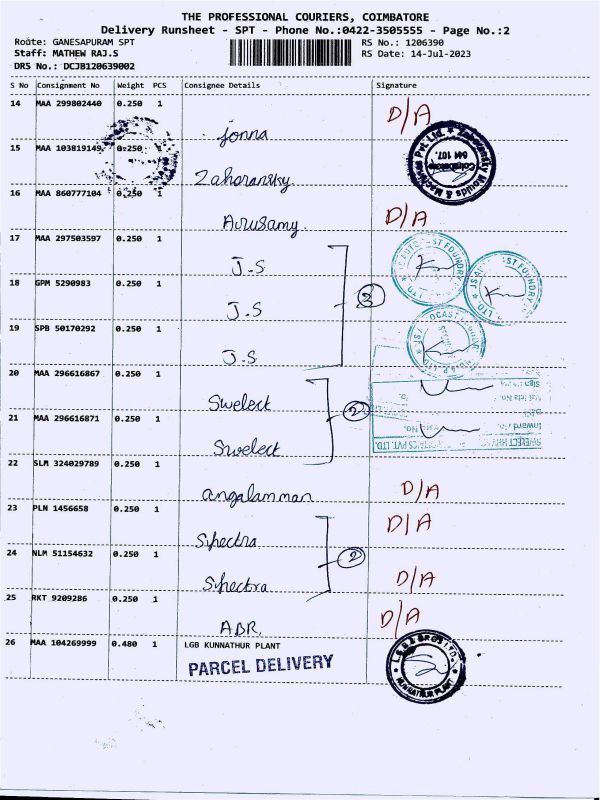 THE PROFESSIONAL COURIERS, COIMBATORE
Delivery Runsheet - SPT - Phone No.:0422-3505555 - Page No.:2
Route: GANESAPURAM SPT RS No.: 1206390
Staff: MATHEW RAJ.S RS Date: 14-Jul-2023
DRS No.: DCJB120639002
S No Consignment No Weight PCS Consignee Details Signature
14 MAA 299802440 0.250 1 D/A
Jonna
15 MAA 103819149 0.250 Zahoransky Moulds & Machines Pvt Ltd. Coimbatore 641 107.
Zahoransky
16 MAA 860777104 0.250 1 D/A
Arusamy
17 MAA 297503597 0.250 1
J.S
18 GPM 5290983 0.250 1 3
J.S
19 SPB 50170292 0.250 1
J.S
20 MAA 296616867 0.250 1
Swelect 2
21 MAA 296616871 0.250 1 Inward No.
Swelect
22 SLM 324029789 0.250 1
angalamman D/A
23 PLN 1456658 0.250 1 D/A
Spectra
24 NLM 51154632 0.250 1 2
Spectra D/A
25 RKT 9209286 0.250 1 D/A
ABR
26 MAA 104269999 0.480 1 LGB KUNNATHUR PLANT
PARCEL DELIVERY KUNNATHUR PLANT